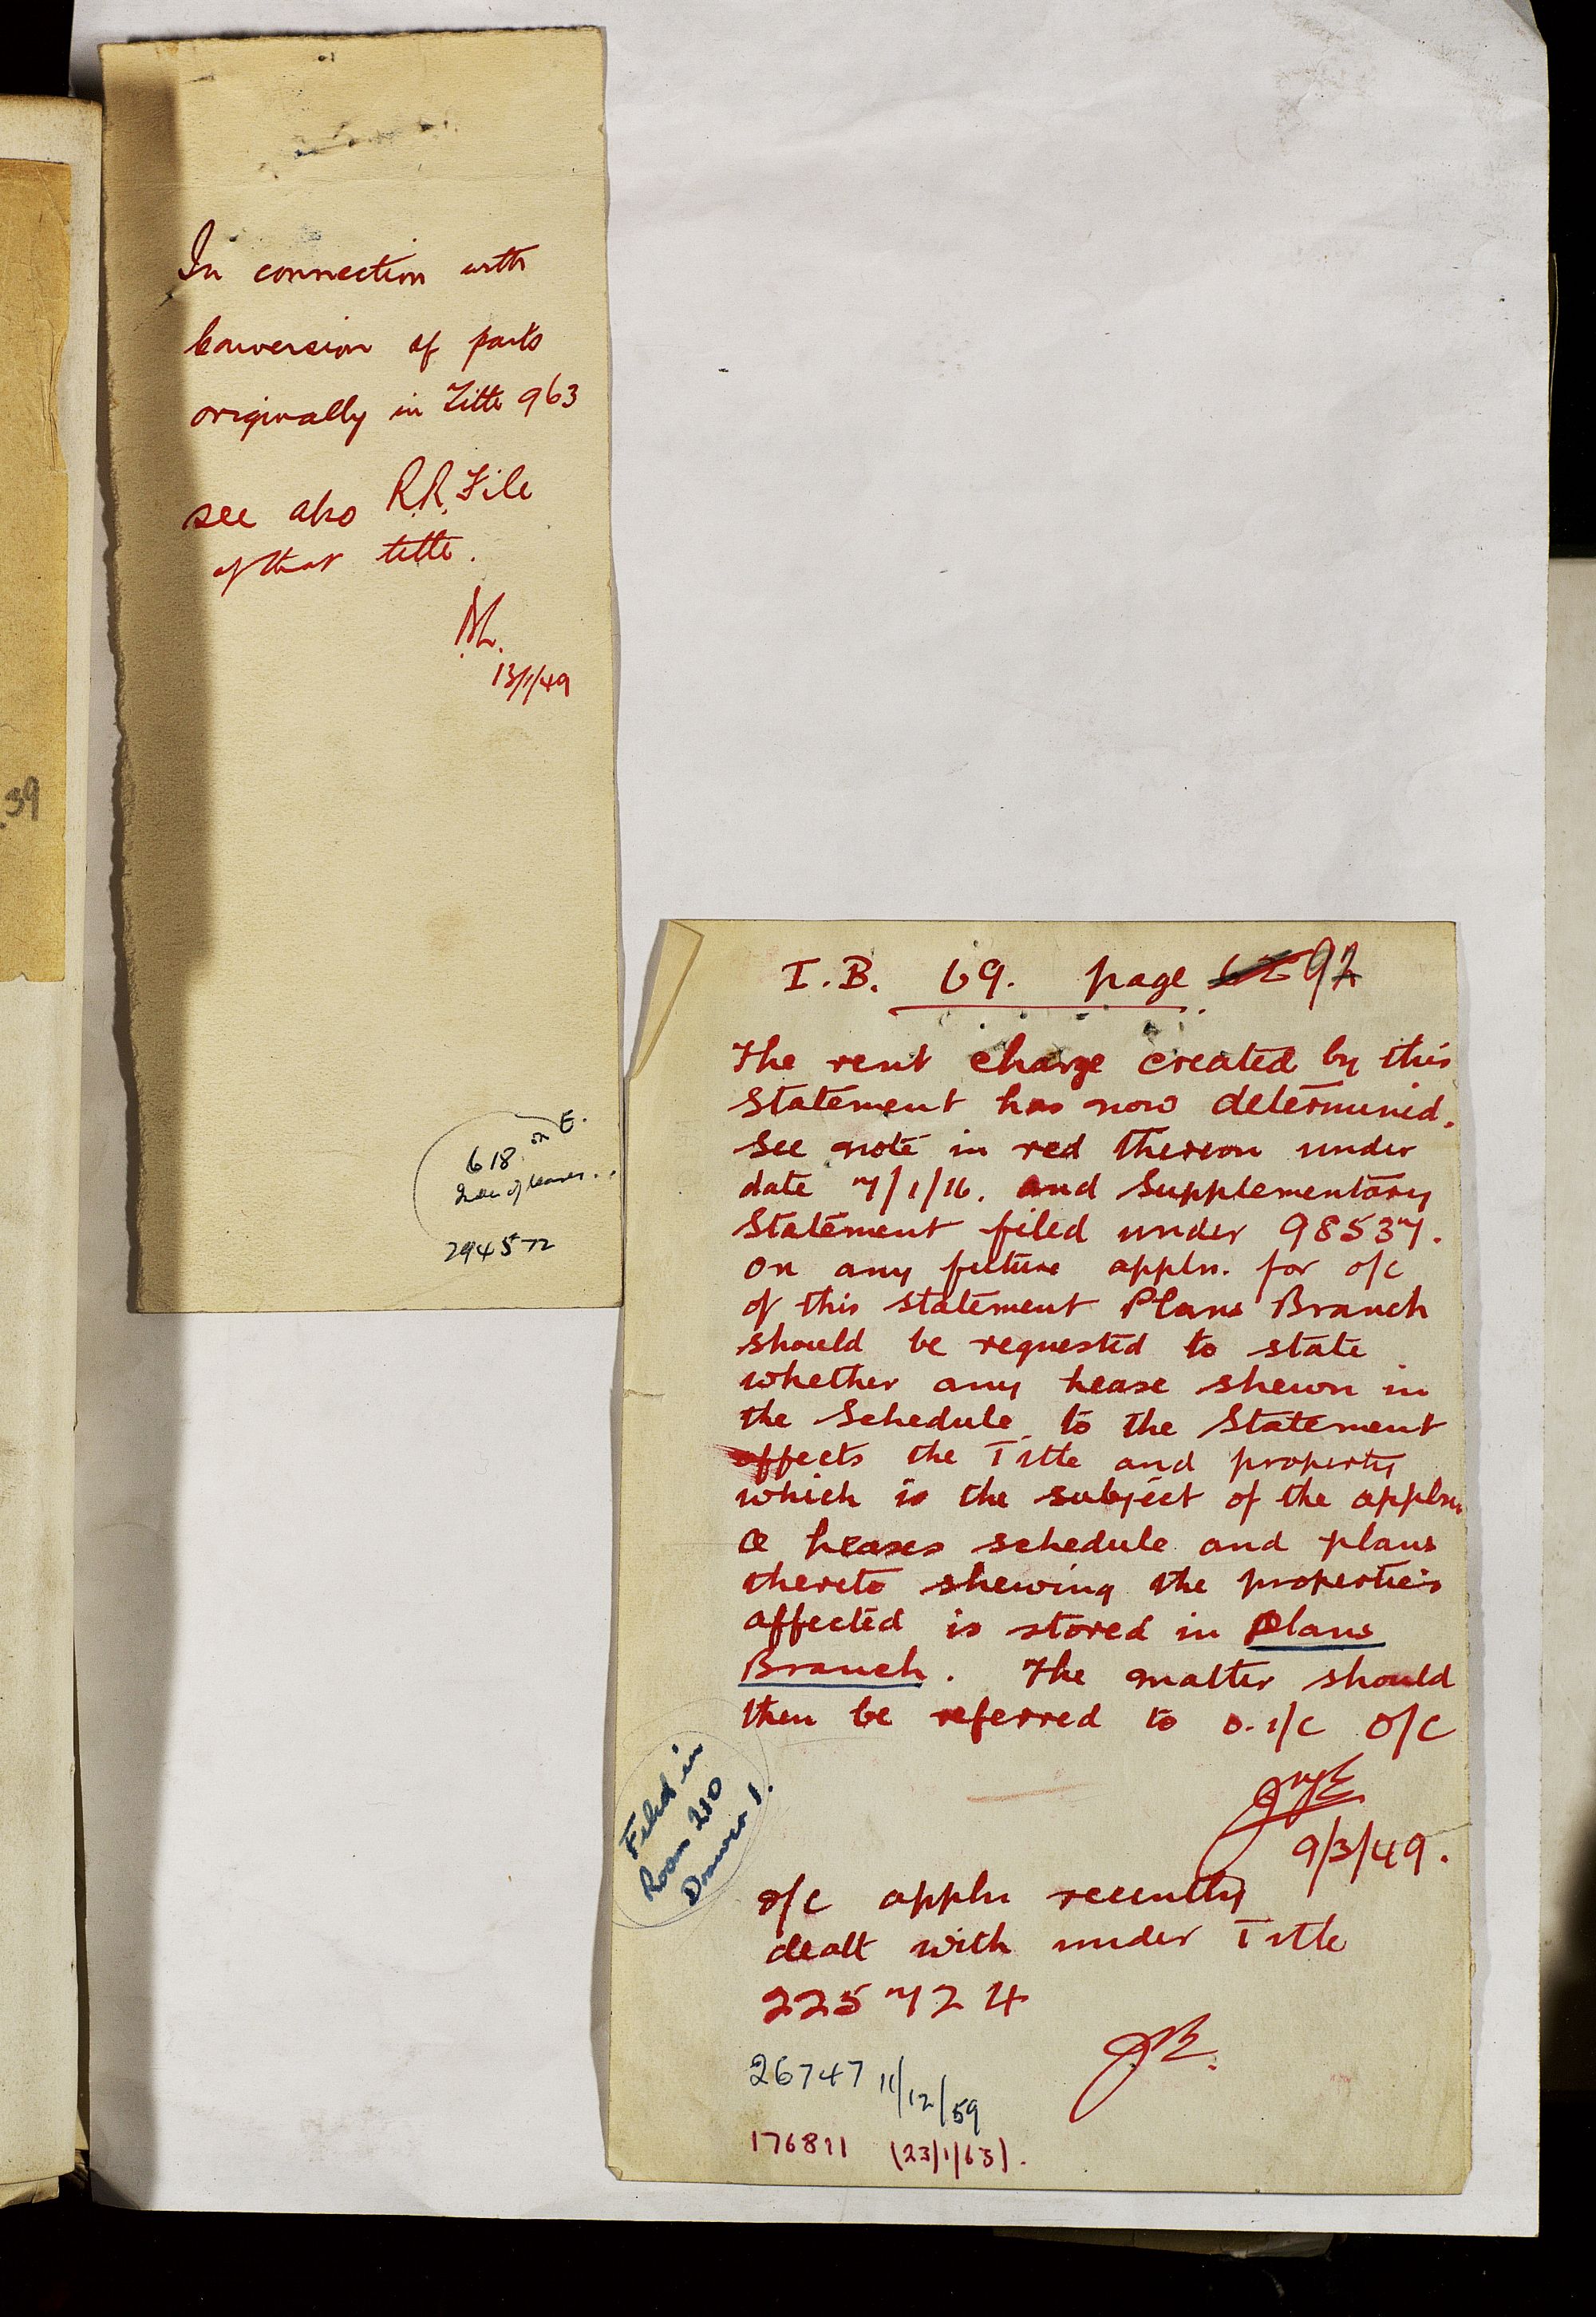 In connection with
Conversion of parts
originally in Title 963
see also R.R. File
of that title.
13/1/49
618 on E.
294572
39
I.B. 69. page 92
The rent charge created by this
Statement has now determined.
See note in red thereon under
date 7/1/16. and Supplementary
Statement filed under 98537.
On any future appln. for o/c
of this statement Plans Branch
should be requested to state
whether any lease shewn in
the Schedule to the Statement
affects the Title and property
which is the subject of the appln.
A leases schedule and plans
thereto shewing the properties
affected is stored in Plans
Branch. The matter should
then be referred to O. i/c O/C
9/3/49.
Filed in
Room 210
Drawer 1.
o/c appln recently
dealt with under Title
225724
26747 11/12/59
176811 (23/1/63).